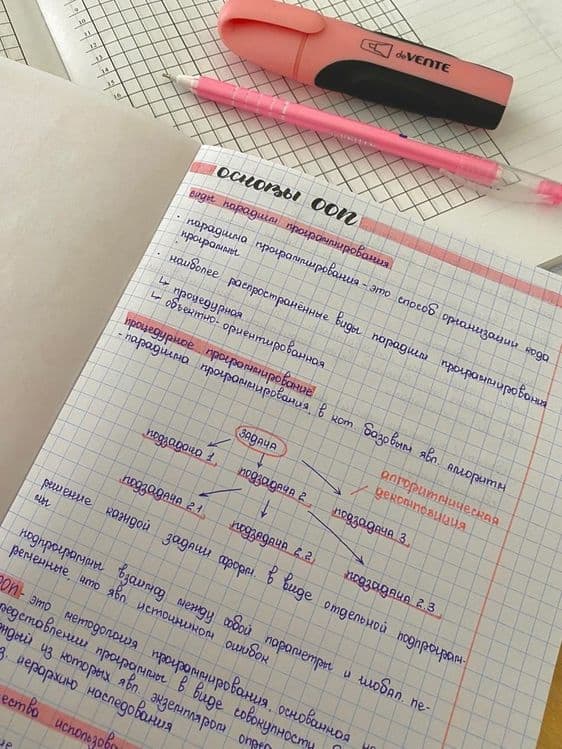 deVENTE
основы ООП
виды парадигм программирования
· парадигма программирования - это способ организации кода
программы
· наиболее распространённые виды парадигм программирования
↳ процедурная
↳ объектно-ориентированная
процедурное программирование
- парадигма программирования, в кот. базовым явл. алгоритм
ЗАДАЧА
подзадача 1
подзадача 2
подзадача 3
алгоритмическая
декомпозиция
подзадача 2.1
подзадача 2.2
подзадача 2.3
решение каждой задачи форм. в виде отдельной подпрограм-
мы
подпрограммы взаимод между собой параметры и глобал. пе-
ременные, что явл. источником ошибок
ООП - это методология программирования, основанная на
представлении программы в виде совокупности
каждый из которых явл. экземпляром
иерархию наследования